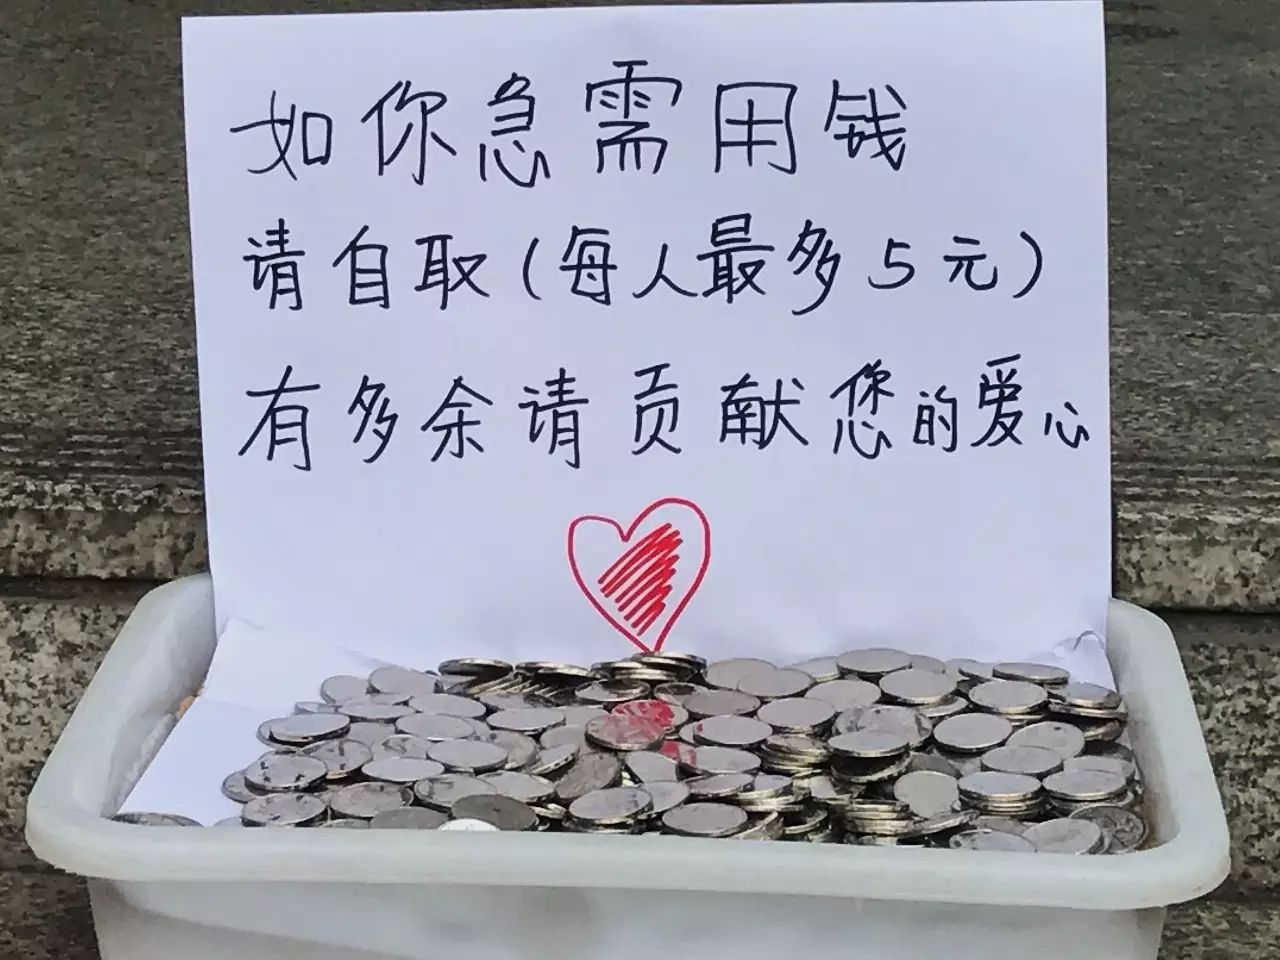 如你急需用钱
请自取(每人最多5元)
有多余请贡献您的爱心